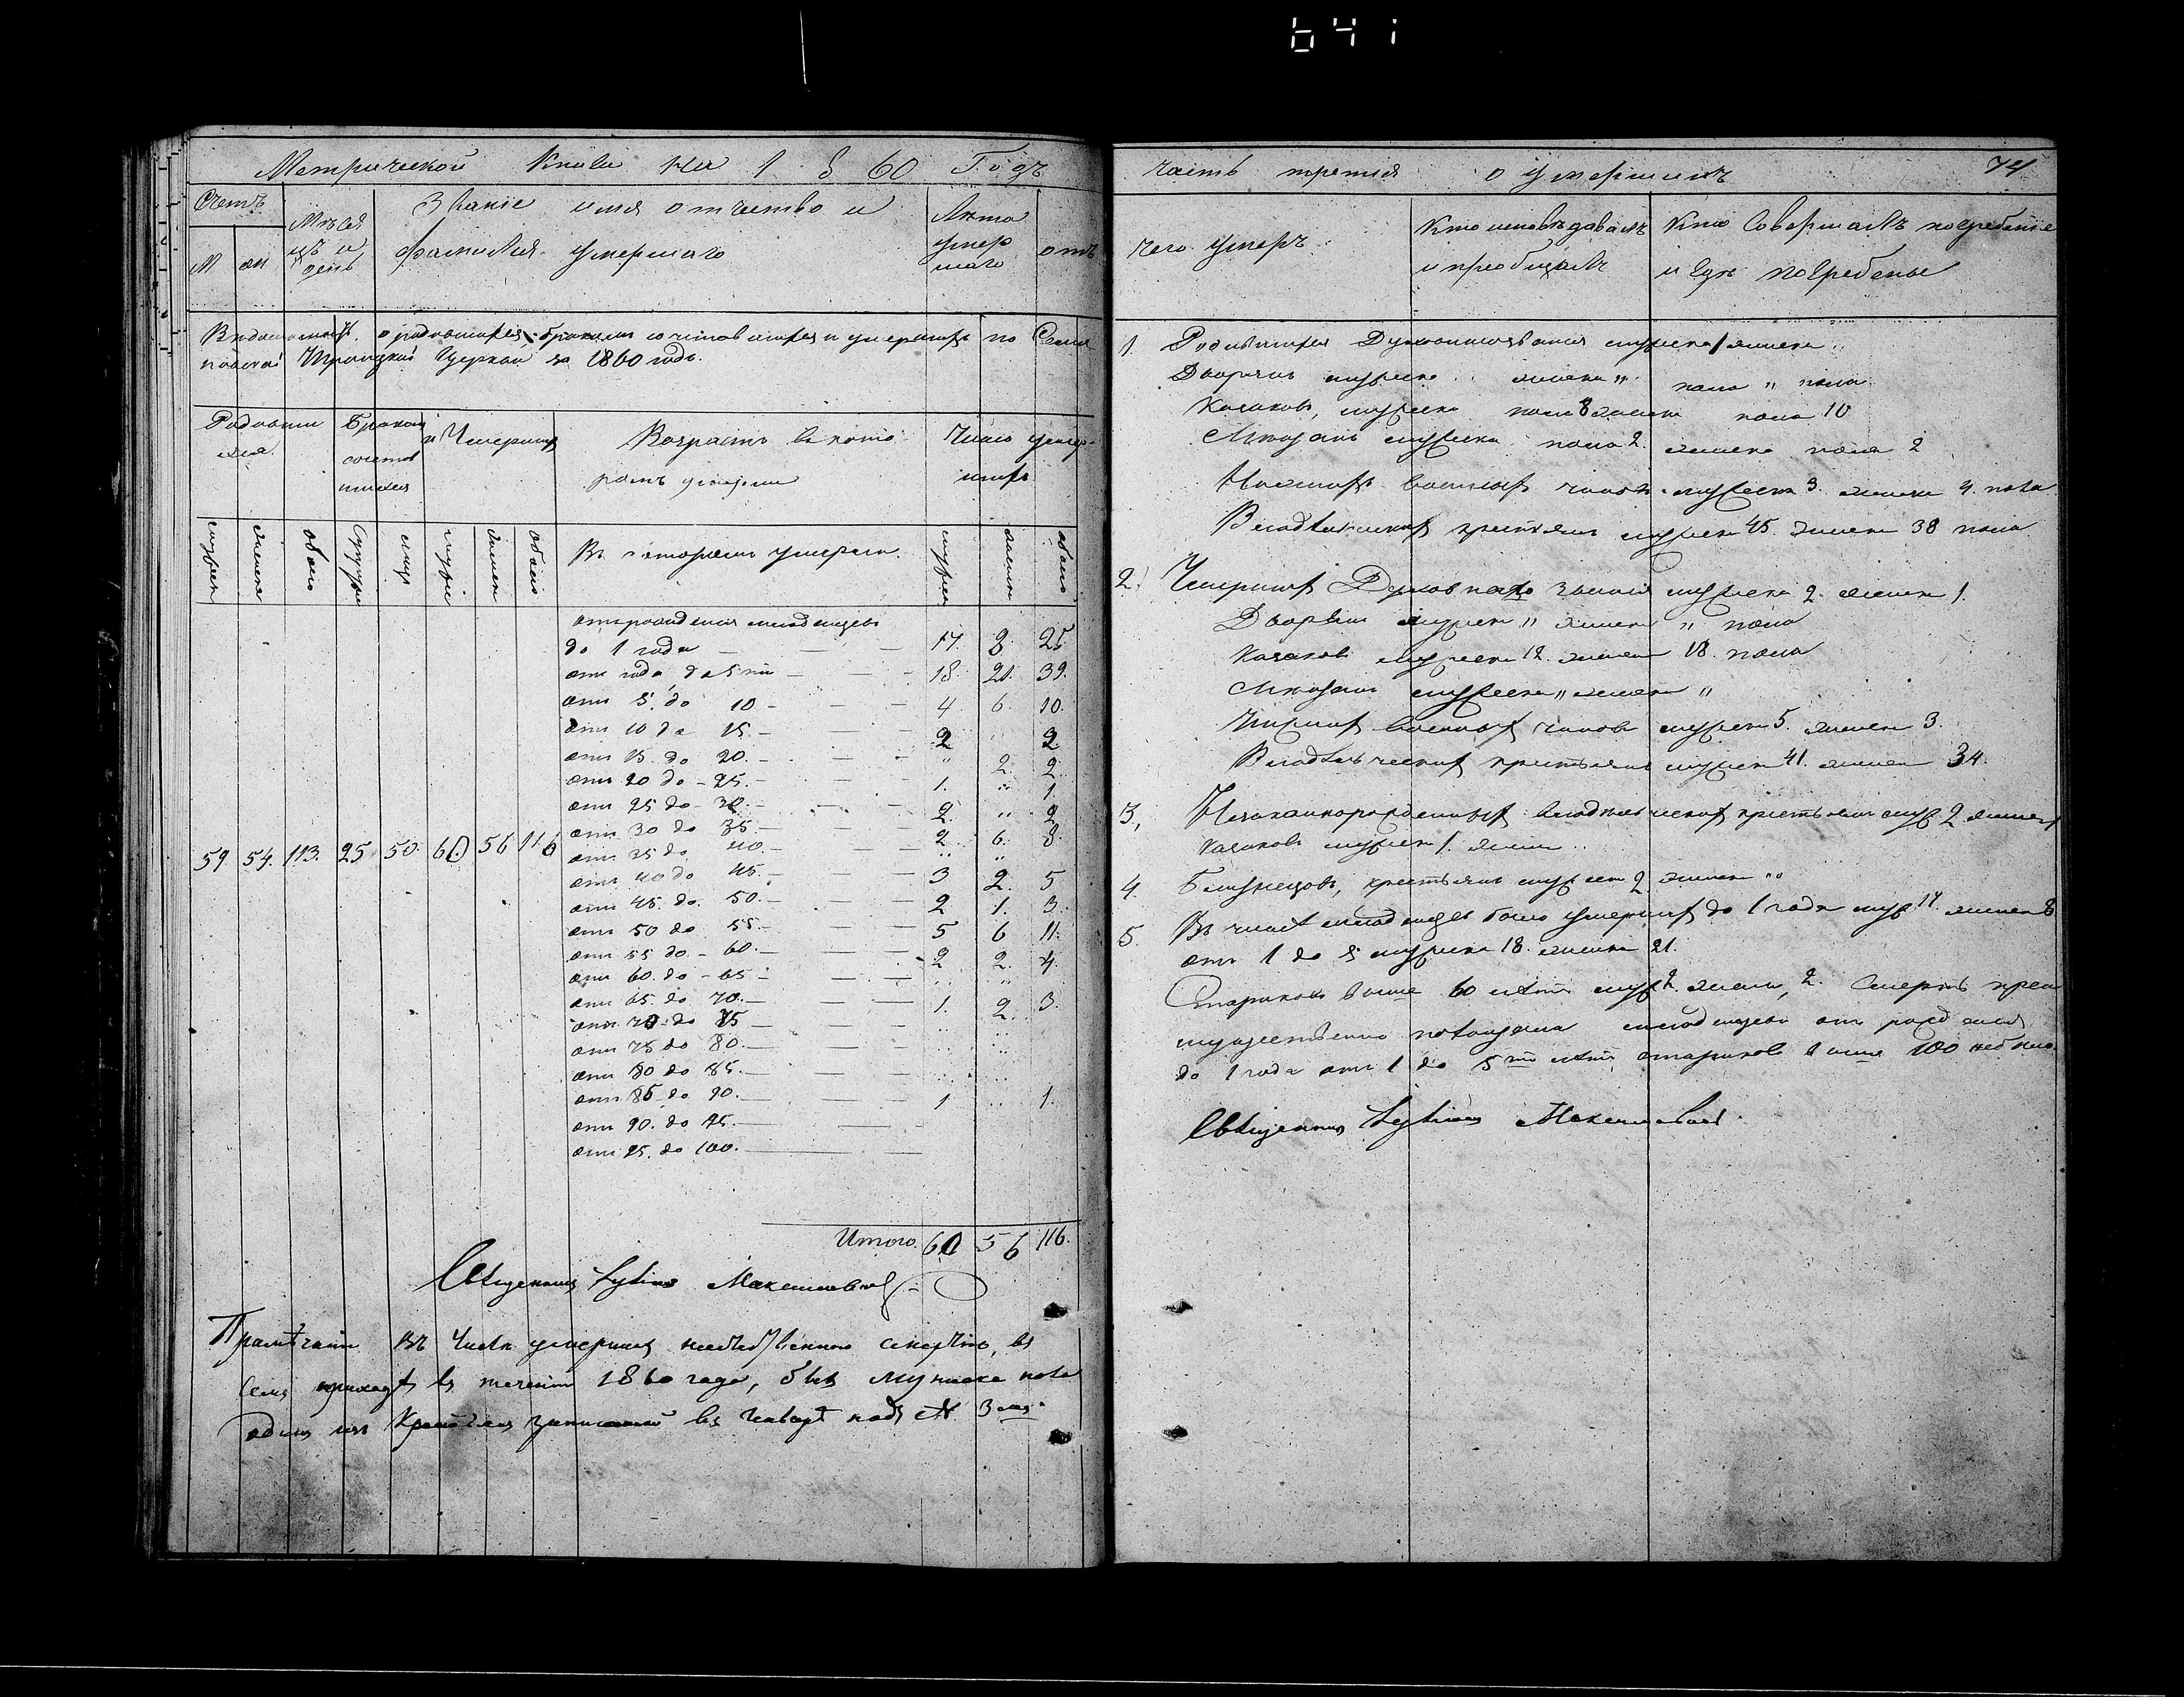 641
Метрической Книги на 1860 Годъ
Счетъ
М
Ж
Мѣся
цъ и
день
Званіе имя отчество и
фамилія умершаго
Лѣта
умер
шаго
отъ
Вѣдомость о родившихся, бракомъ сочетавшихся и умершихъ по
Троицкой Церкви за 1860 годъ.
Родивши
хся
Бракомъ
сочетав
шихся
Умершихъ
Возрастъ въ кото
ромъ умерли
Число умер
шихъ
мужеск
женска
обоего
Супруж
лицъ
мужес
женск
обоего
Въ которомъ умерли.
мужеск
женск
обоего
отъ рожденія младенцевъ
до 1 года — 17. 8. 25
отъ года до 5ти — 18. 21. 39.
отъ 5. до 10 — 4 6. 10.
отъ 10 до 15. — 2 " 2
отъ 15. до 20. — " 2. 2.
отъ 20 до 25. — 1. " 1.
отъ 25 до 30. — 2. " 2
отъ 30 до 35. — 2 6. 8.
59 54. 113. 25 50. 60. 56 116
отъ 35 до 40. — " "
отъ 40 до 45. — 3 2. 5
отъ 45. до 50. — 2 1. 3.
отъ 50 до 55. — 5 6 11.
отъ 55 до 60. — 2 2. 4.
отъ 60. до 65 — " "
отъ 65. до 70. — 1. 2. 3.
отъ 70 до 75 —
отъ 75 до 80. —
отъ 80 до 85. —
отъ 85 до 90. — 1 " 1.
отъ 90. до 95. —
отъ 95. до 100. —
Итого 60 56 116.
Священникъ Максимовичъ
Примѣчаніе Въ числѣ умершихъ смертію, въ
семъ приходѣ въ теченіи 1860 года, былъ мужеска пола
одинъ изъ Крестьянъ записанный въ Январѣ подъ № 3мъ.
часть третья о умершихъ 74
чего умеръ
Кто исповѣдавалъ
и пріобщалъ
Кто Совершалъ погребеніе
и гдѣ погребены
1. Родившихся Духовнаго званія мужеска 1 женска "
Дворянъ мужеска " женска " пола " пола
Казаковъ, мужеска пола 8 женска пола 10
Мѣщанъ мужеска пола 2. женска пола 2
военныхъ чиновъ мужеска 3. женска 4. пола
Владѣльческихъ крестьянъ мужеска 45. женска 38 пола
2. Умершихъ Духовнаго званія мужеска 2. женск 1.
Дворянъ мужеск " женск " пола
Казаковъ мужеска 12. женск 18. пола
Мѣщанъ мужеска " женска "
Нижнихъ военныхъ чиновъ мужеск 5. женска 3.
Владѣльческихъ крестьянъ мужеск 41. женск 34.
3, Незаконорожденныхъ владѣльческихъ крестьянъ муж 2 женск
Казаковъ мужеск 1. женск "
4. Близнецовъ, крестьянъ мужеск 2 женск "
5. Въ числѣ младенцевъ было умершихъ до 1 года муж 17. женск 8
отъ 1 до 5 мужеска 18. женска 21.
Стариковъ выше 60 лѣтъ муж 2. женск, 2. Смерть преи
мущественно младенцевъ отъ рожденія
до 1 года отъ 1 до 5ти лѣтъ, стариковъ выше 100 небыло.
Священникъ Максимовичъ.